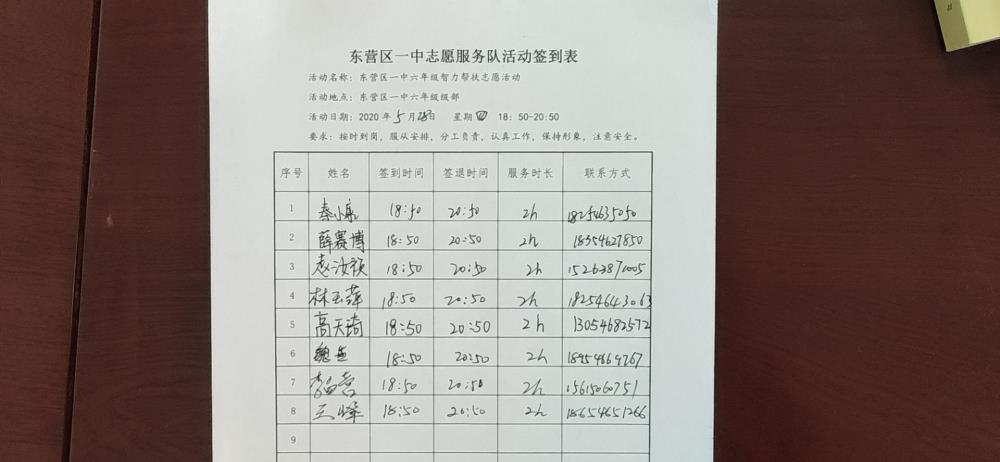 东营区一中志愿服务队活动签到表
活动名称：东营区一中六年级智力帮扶志愿活动
活动地点：东营区一中六年级级部
活动日期：2020 年 5 月 28日 星期 四 18：50-20:50
要求：按时到岗，服从安排，分工负责，认真工作，保持形象，注意安全。
序号 姓名 签到时间 签退时间 服务时长 联系方式
1 18:50 20:50 2h 18254635050
2 薛赛博 18:50 20:50 2h 18354627850
3 18:50 20:50 2h
4 林玉萍 18:50 20:50 2h 18254643063
5 高天琦 18:50 20:50 2h 13054682572
6 18:50 20:50 2h
7 18:50 20:50 2h
8 王峰 18:50 20:50 2h 18654651266
9